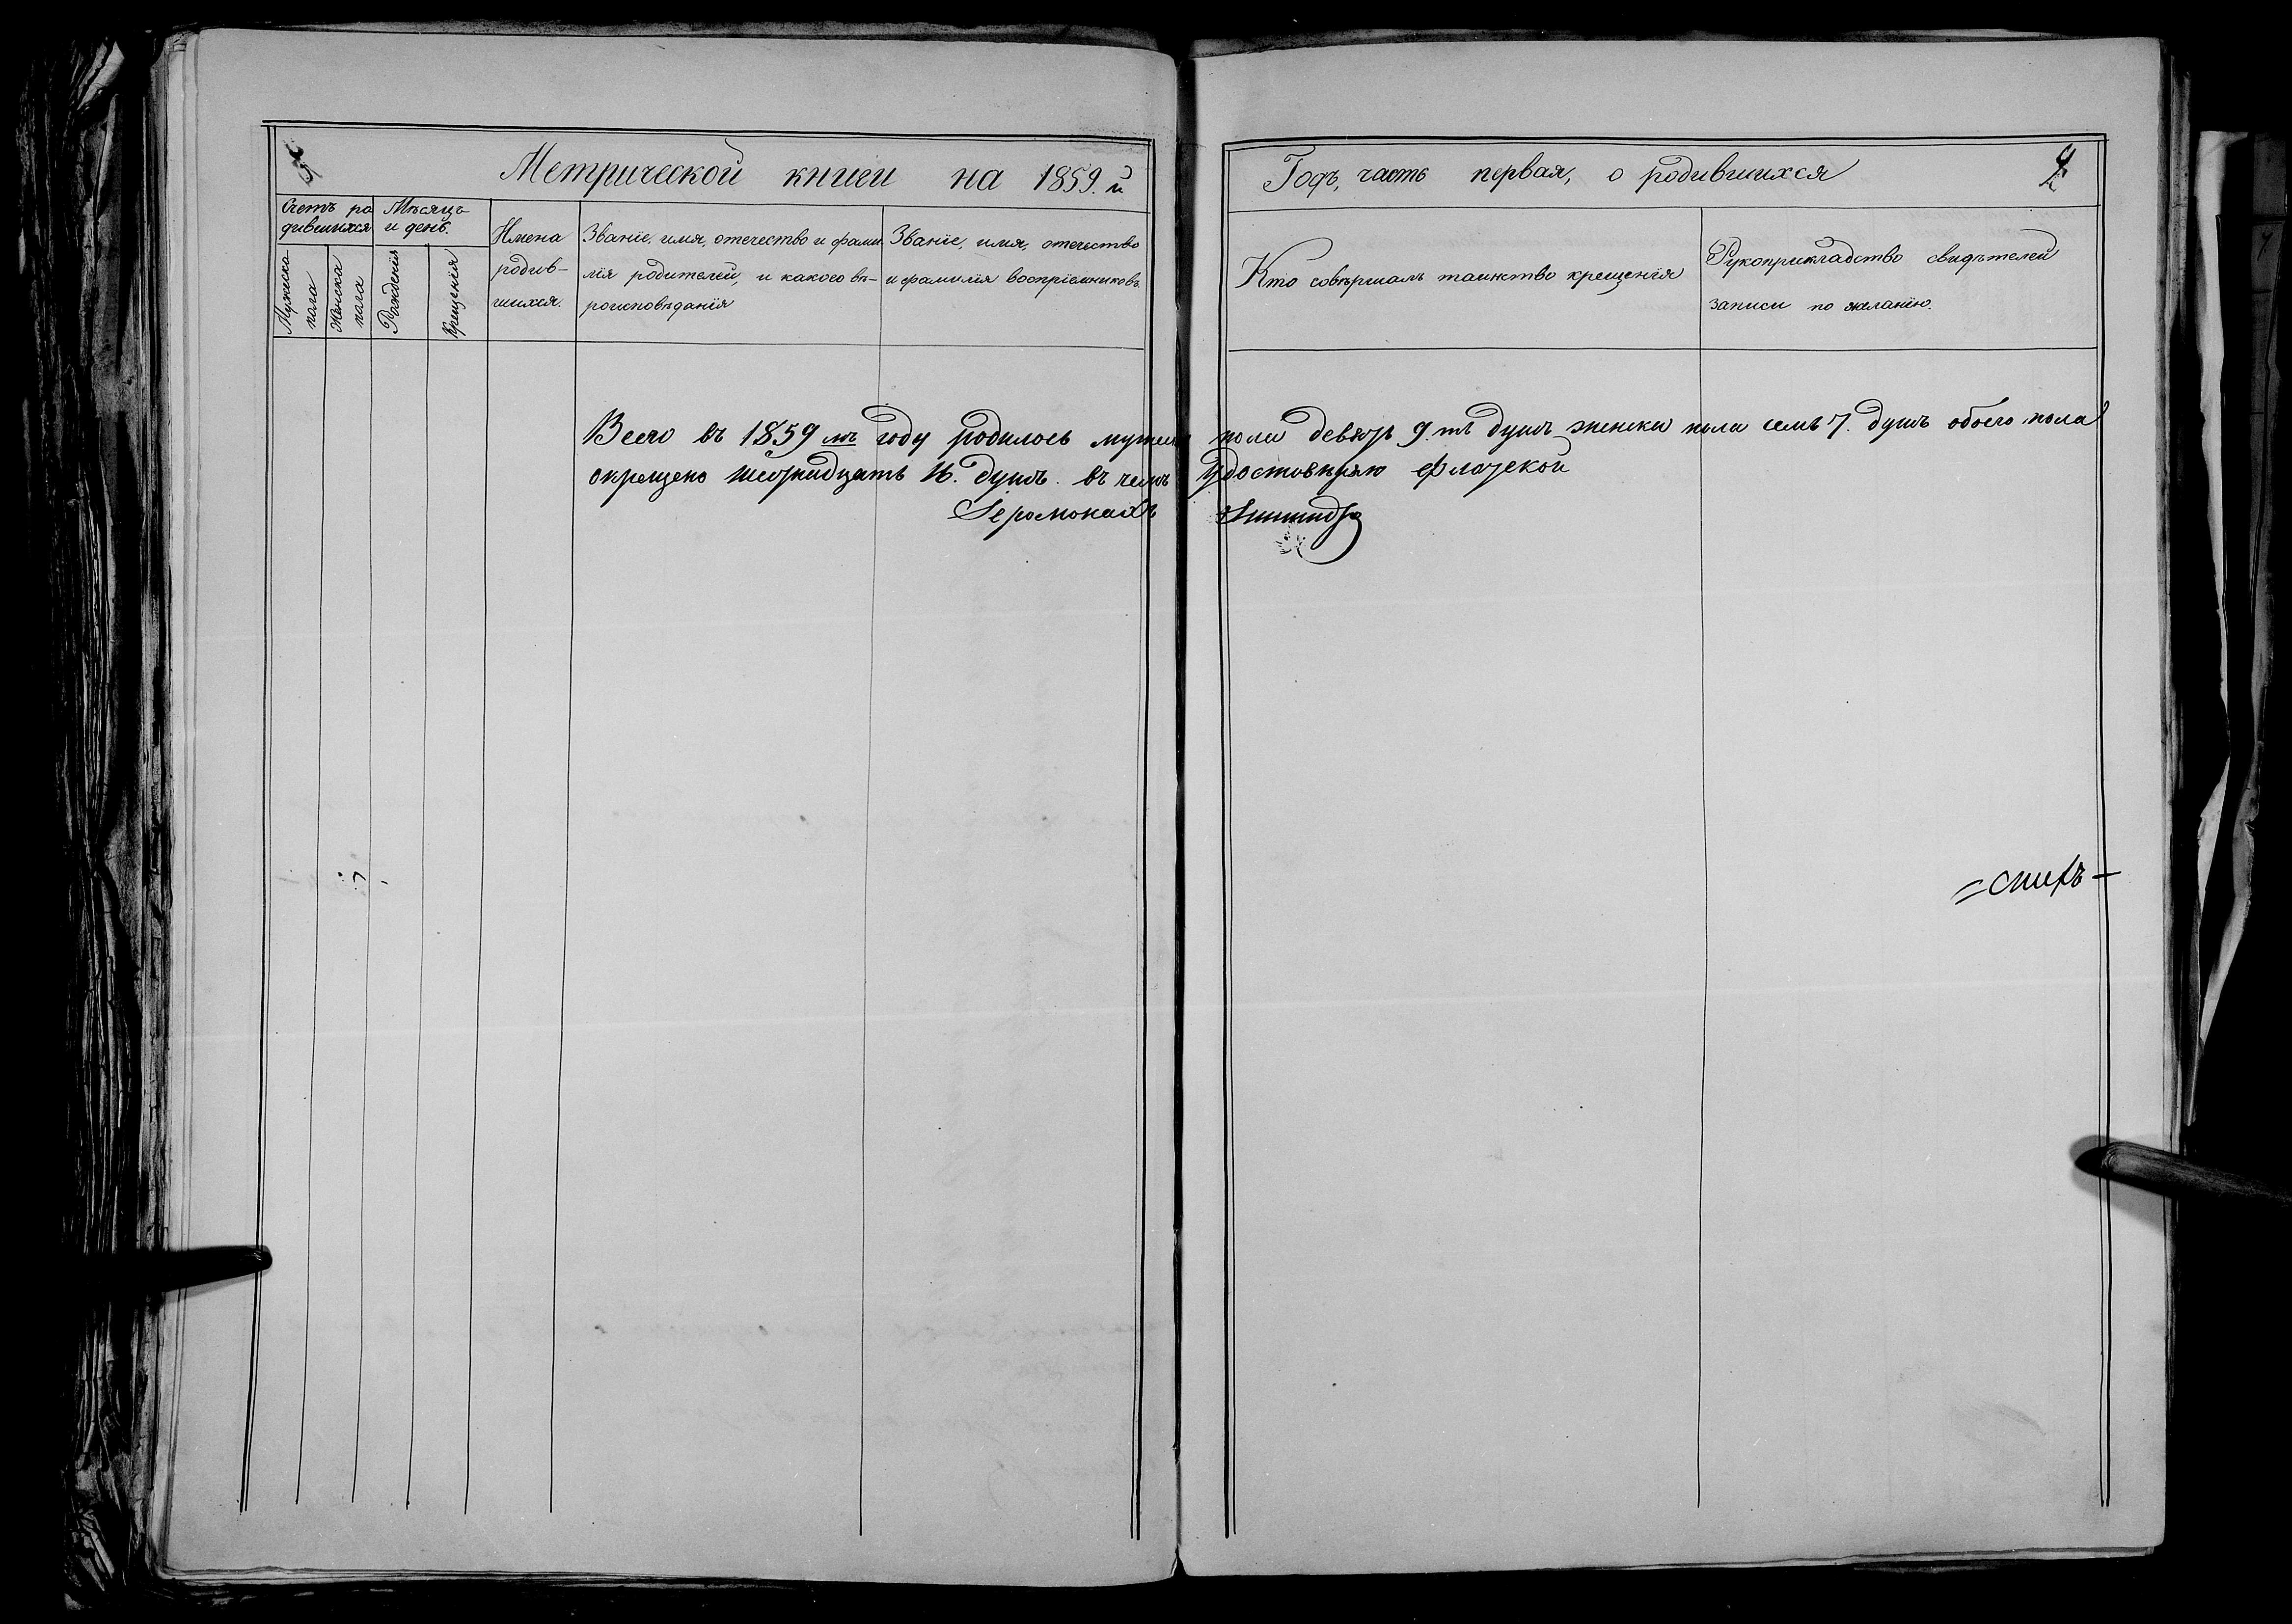 Метрической книги на 1859.й
Годъ, часть первая, о родившихся
Счетъ ро
дившихся
Мѣсяцъ
и день.
Мужеска
пола
Женска
пола
Рожденія
Крещенія
Имена
родив-
шихся.
Званіе, имя, отечество и фами
лія родителей, и какого вѣ-
роисповѣданія
Званіе, имя, отечество
и фамилія воспріемниковъ.
Кто совершалъ таинство крещенія
Рукоприкладство свидѣтелей
записи по желанію.
Всего въ 1859 мъ году родилось мужска пола девять 9.ть душъ женска пола семь 7. душъ обоего пола
окрещено шестнадцать 16. душъ. въ чемъ удостовѣряю Флотской
Іеромонахъ